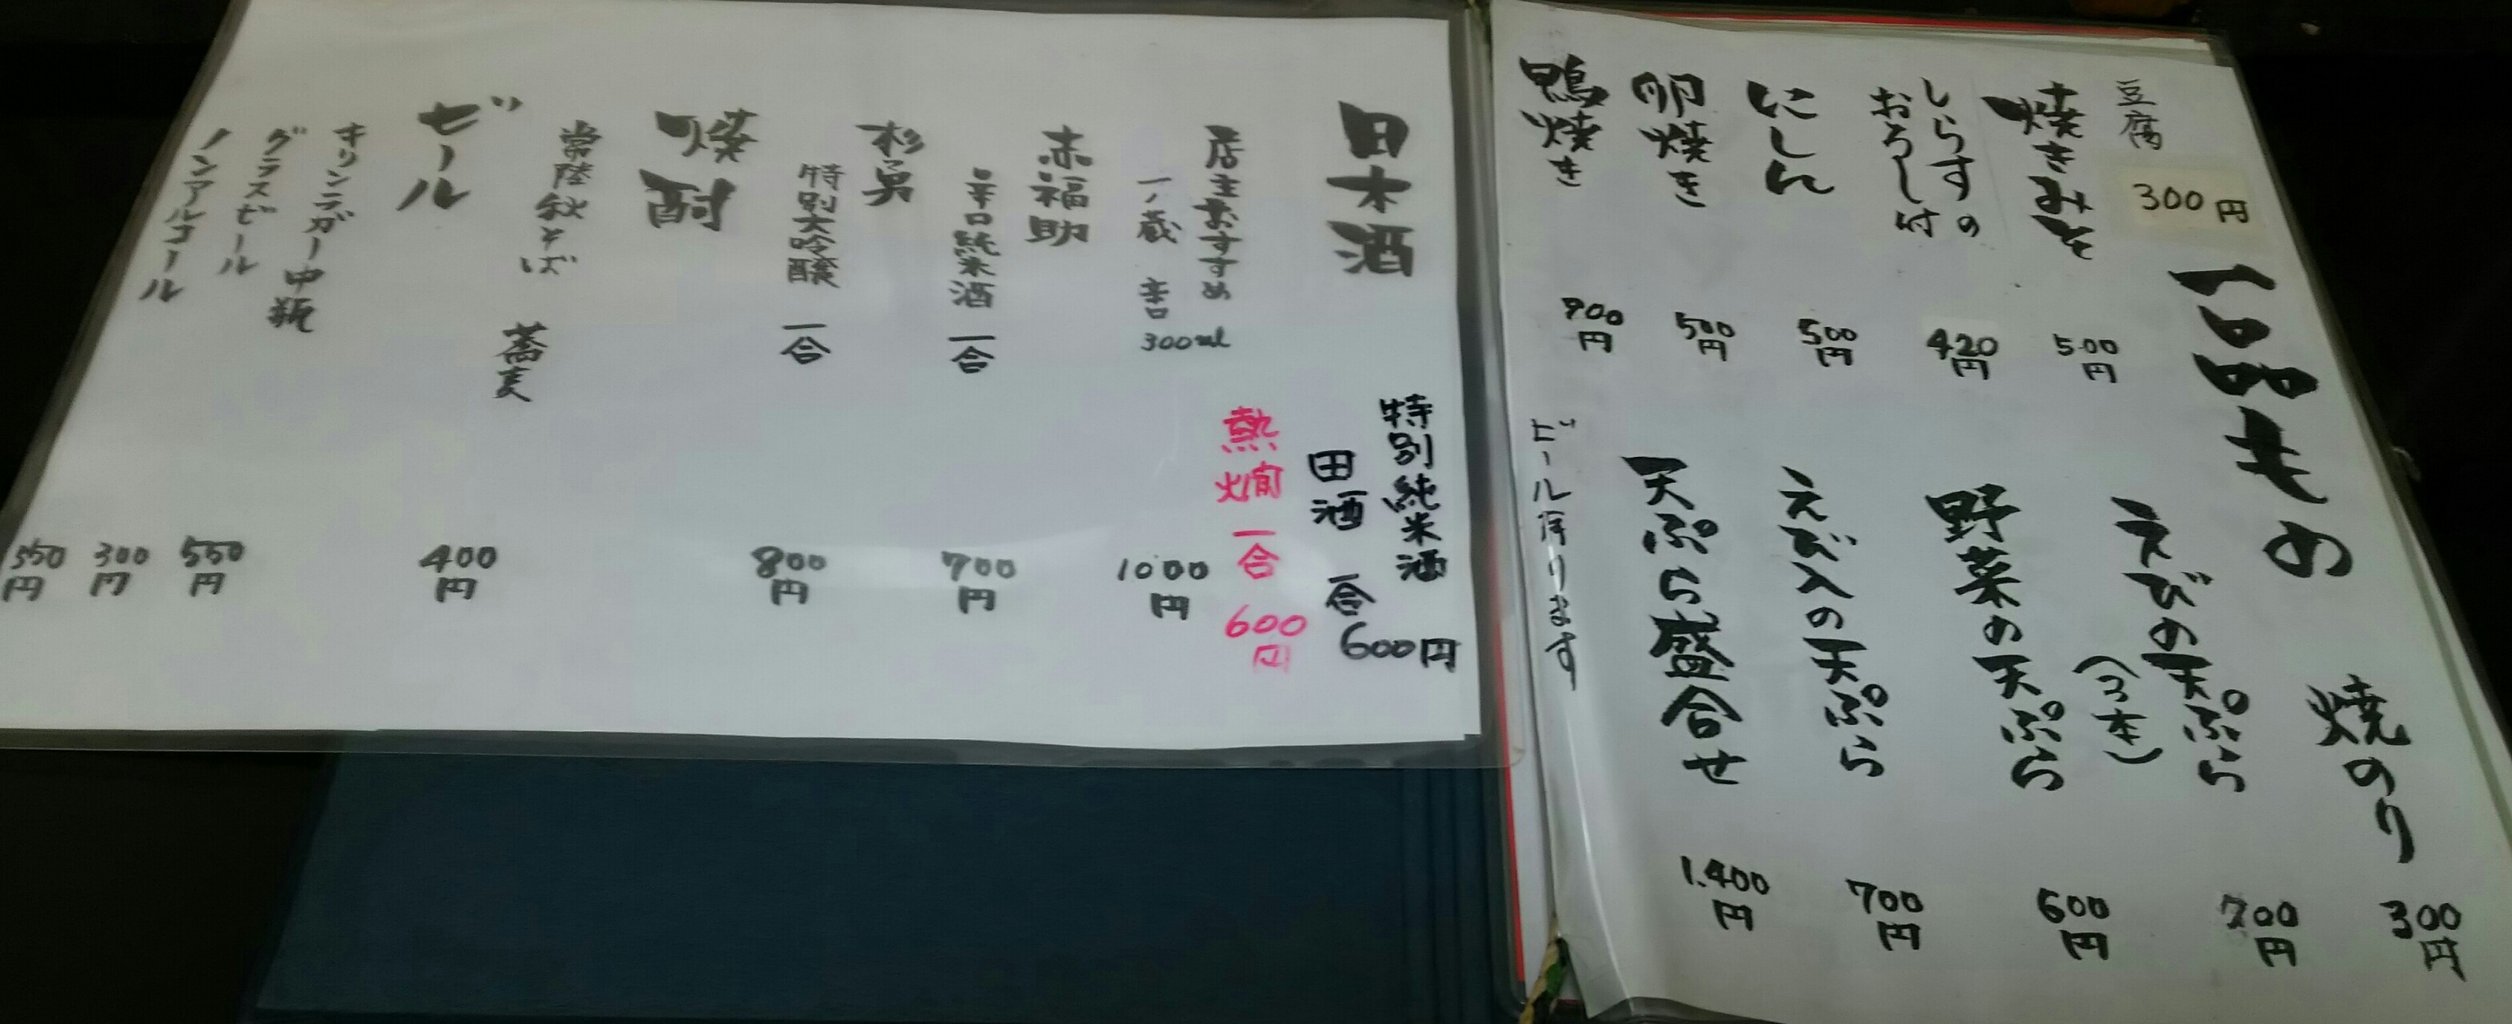 一品もの
焼のり 300円
豆腐 300円
焼きみそ 500円
しらすの
おろし付 420円
にしん 500円
卵焼き 500円
鴨焼き 900円
えびの天ぷら
(3本) 700円
野菜の天ぷら 600円
えび入の天ぷら 700円
天ぷら盛合せ 1.400円
ビール有ります
日本酒
特別純米酒
田酒 一合 600円
熱燗 一合 600円
店主おすすめ
一ノ蔵 辛口 300ml 1000円
赤福助
辛口純米酒 一合 700円
杉勇
特別大吟醸 一合 800円
焼酎
常陸秋そば
蕎麦 400円
ビール
キリンラガー中瓶 550円
グラスビール 300円
ノンアルコール 350円